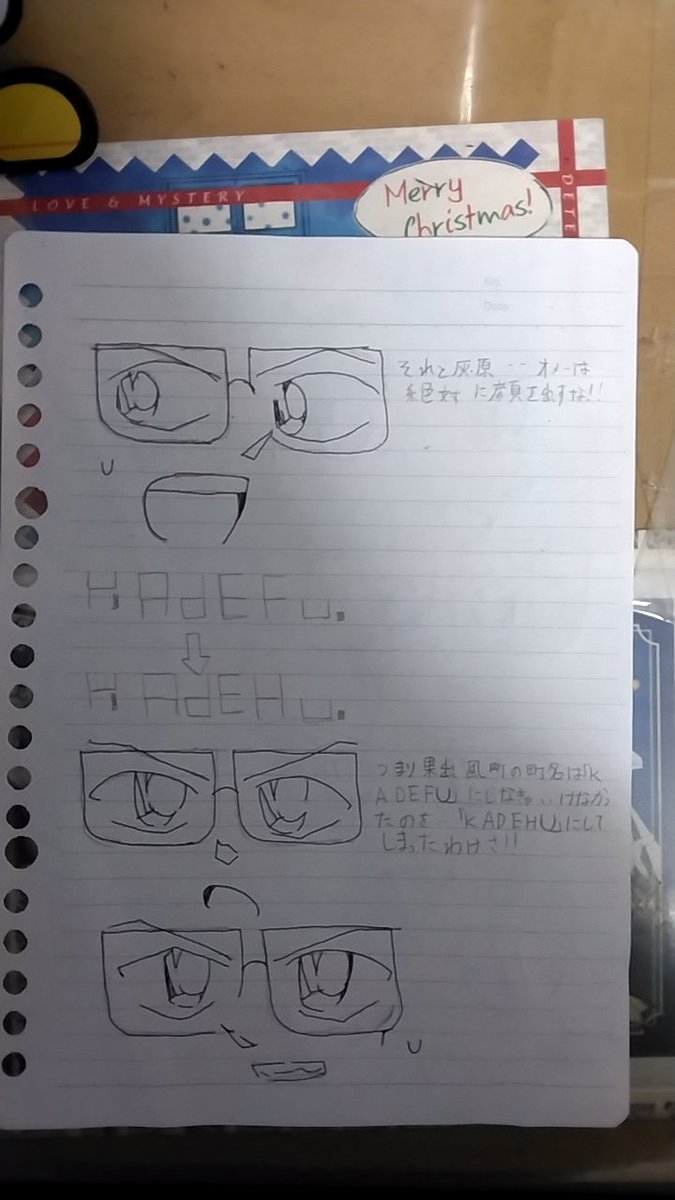 LOVE & MYSTERY
Merry
Christmas!
DETE
No.
Date
それと灰原‥オメーは
絶対に顔を出すな!!
KADEFU.
KADEHU.
つまり果出風町の町名は「K
ADEFU」にしなきゃいけなかっ
たのを‥「KADEHU」にして
しまったわけさ!!